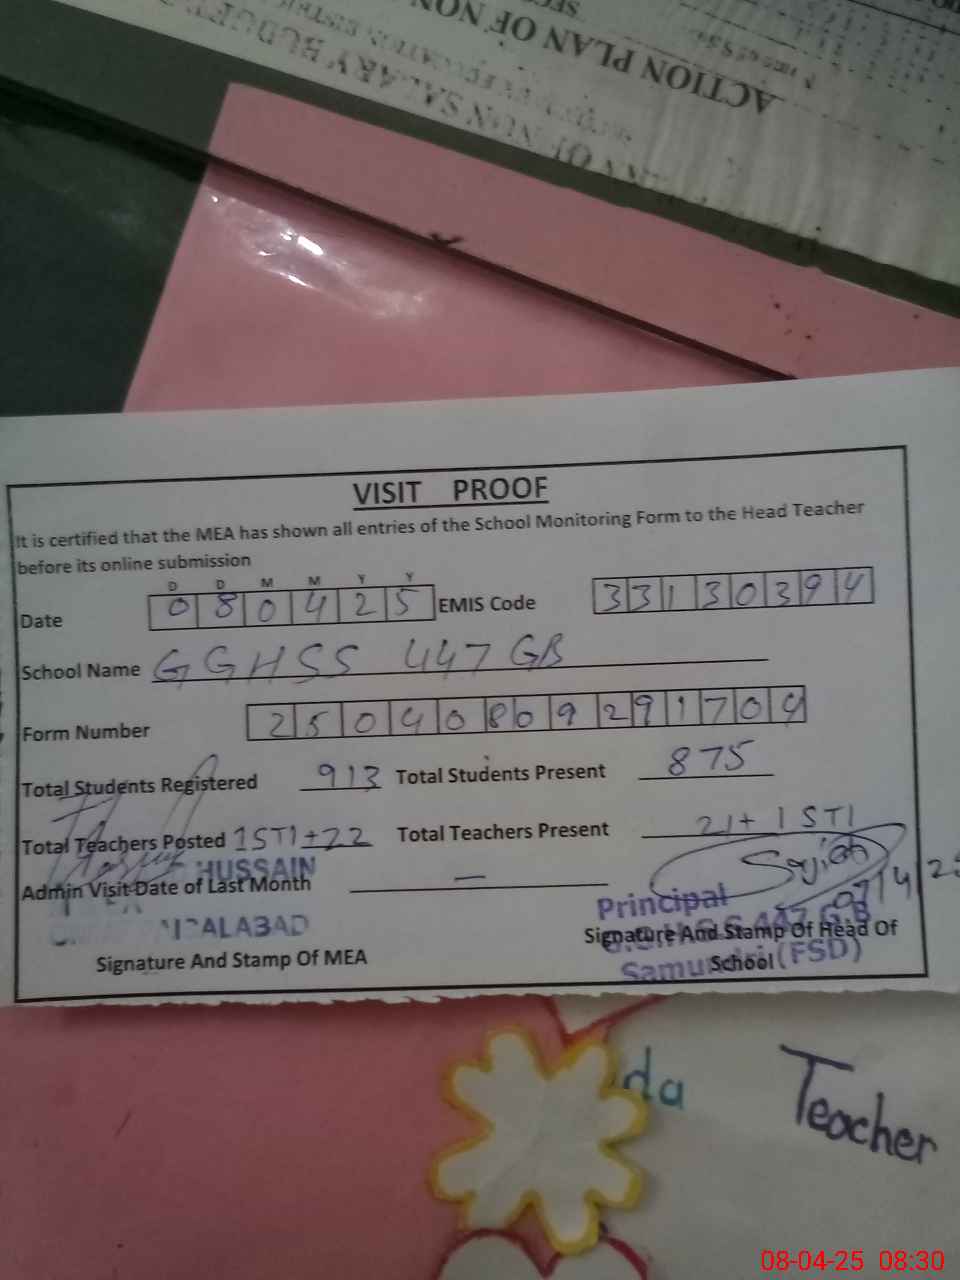 ACTION PLAN OF NON
VISIT PROOF
It is certified that the MEA has shown all entries of the School Monitoring Form to the Head Teacher
before its online submission
D D M M Y Y
Date 0 8 0 4 2 5 EMIS Code 3 3 1 3 0 3 9 4
School Name GGHSS 447 GB
Form Number 2 5 0 4 0 8 0 9 2 9 1 7 0 4
Total Students Registered 913 Total Students Present 875
Total Teachers Posted 1STI+22 Total Teachers Present 21+1STI
HUSSAIN
Admin Visit Date of Last Month —
Principal
447 G.B
Signature And Stamp Of Head Of
School
(FSD)
Signature And Stamp Of MEA
da Teacher
08-04-25 08:30